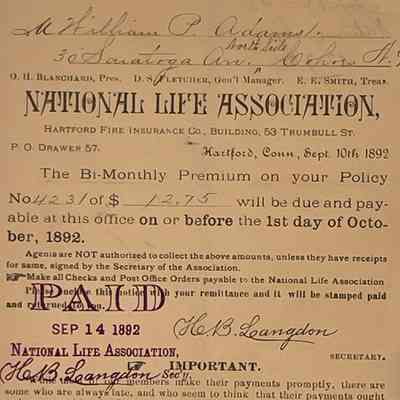 M William P. Adams.
North Side
30 Saratoga Av. Cohoes N.Y
O. H. BLANCHARD, Pres. D. S. FLETCHER, Gen'l Manager. E. E. SMITH, Treas.
NATIONAL LIFE ASSOCIATION,
HARTFORD FIRE INSURANCE CO., BUILDING, 53 TRUMBULL ST.
P. O. DRAWER 57.
Hartford, Conn., Sept. 10th 1892
The Bi-Monthly Premium on your Policy
No 4231 of $ 12.75 will be due and pay-
able at this office on or before the 1st day of Octo-
ber, 1892.
Agents are NOT authorized to collect the above amounts, unless they have receipts
for same, signed by the Secretary of the Association.
Make all Checks and Post Office Orders payable to the National Life Association
Please enclose this notice with your remittance and it will be stamped paid
and returned to you.
PAID
SEP 14 1892
H. B. Langdon
NATIONAL LIFE ASSOCIATION,
SECRETARY.
H. B. Langdon Sec'y.
IMPORTANT.
of our members make their payments promptly, there are
some who are always late, and who seem to think that their payments ought